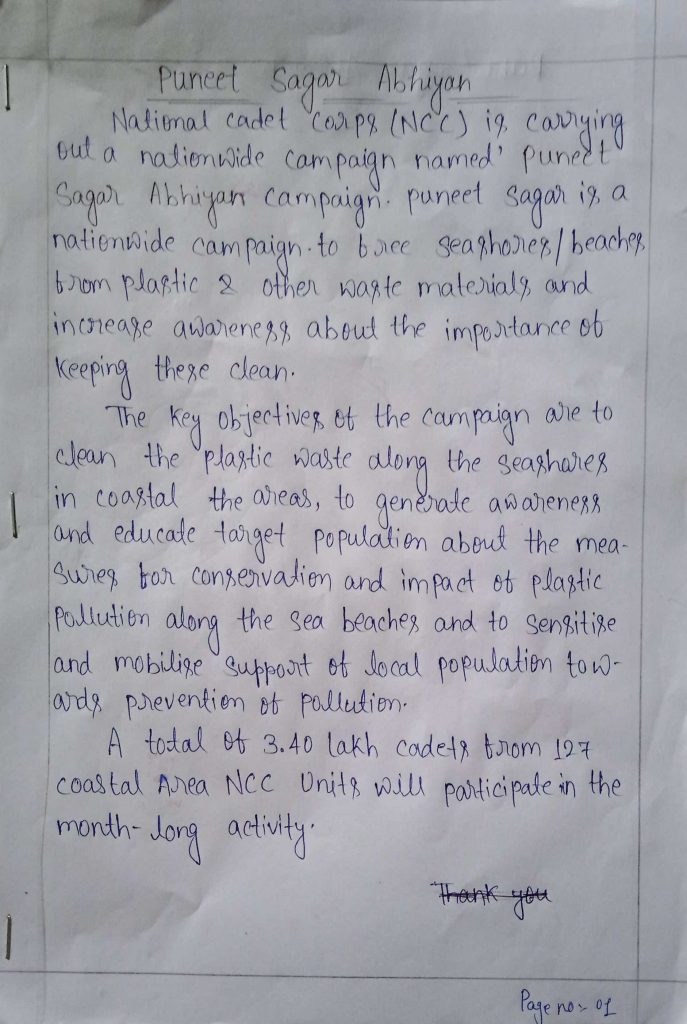 Puneet Sagar Abhiyan
National cadet Corps (NCC) is carrying
out a nationwide campaign named' Puneet
Sagar Abhiyan campaign. puneet sagar is a
nationwide campaign. to free seashores/beaches
from plastic & other waste materials and
increase awareness about the importance of
keeping these clean.
The key objectives of the campaign are to
clean the plastic waste along the seashares
in coastal the areas, to generate awareness
and educate target population about the mea-
sures for conservation and impact of plastic
pollution along the sea beaches and to sensitise
and mobilise support of local population tow-
ards prevention of pollution.
A total of 3.40 lakh cadets from 127
coastal Area NCC Units will participate in the
month-long activity.
Thank you
Page no:- 01